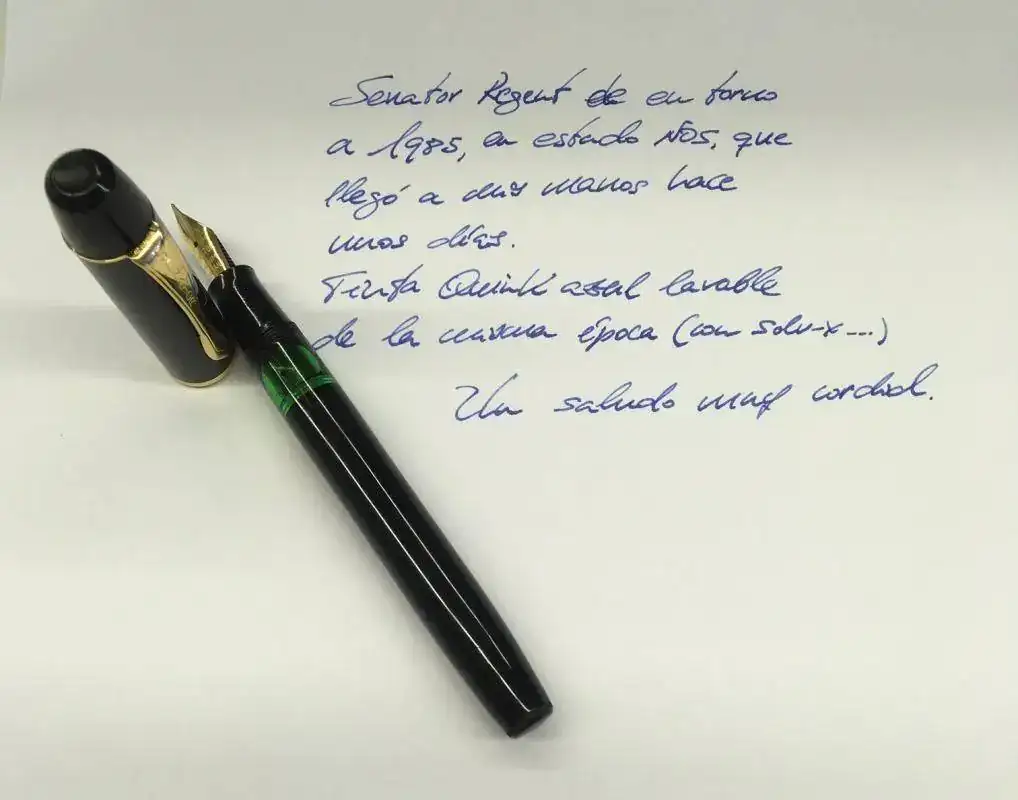 Senator Regent de en torno
a 1985, en estado NOS, que
llegó a mis manos hace
unos días.
Tinta Quink azul lavable
de la misma época (con solv-x...)
Un saludo muy cordial.